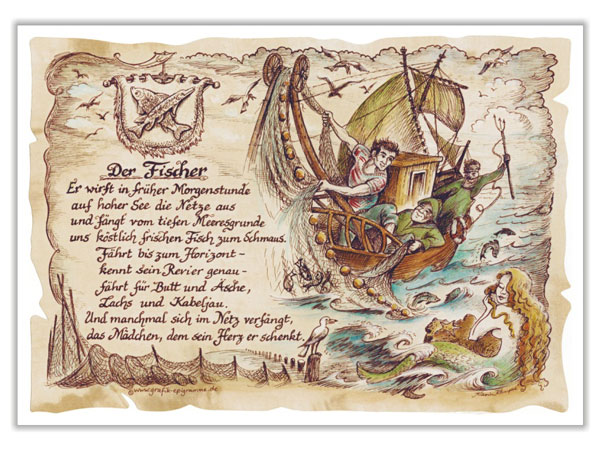 Der Fischer
Er wirft in früher Morgenstunde
auf hoher See die Netze aus
und fängt vom tiefen Meeresgrunde
uns köstlich frischen Fisch zum Schmaus.
Fährt bis zum Horizont –
kennt sein Revier genau –
fährt für Butt und Äsche,
Lachs und Kabeljau.
Und manchmal sich im Netz verfängt,
das Mädchen, dem sein Herz er schenkt.
©www.grafik-epigramme.de